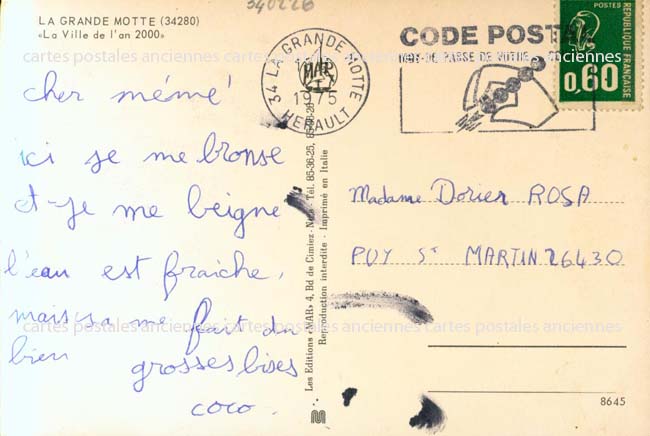 340226
LA GRANDE MOTTE (34280)
«La Ville de l'an 2000»
cher mémé!
ici je me bronse
et-je me beigne
l'eau est fraîche,
mais sa me fait du
bien grosses bises
coco.
34 LA GRANDE MOTTE
1975
HERAULT
CODE POSTAL
MOT DE PASSE DE VOTRE
POSTES
REPUBLIQUE FRANÇAISE
0,60
Les Editions «MAR» 4, Bd de Cimiez - Nice - Tél. 85-36-25,
Reproduction interdite - Imprimé en Italie
Madame Dorier ROSA
PUY St MARTIN 26430
8645
cartes postales anciennes cartes postales anciennes cartes postales anciennes
cartes postales anciennes cartes postales anciennes cartes postales anciennes
cartes postales anciennes cartes postales anciennes cartes postales anciennes